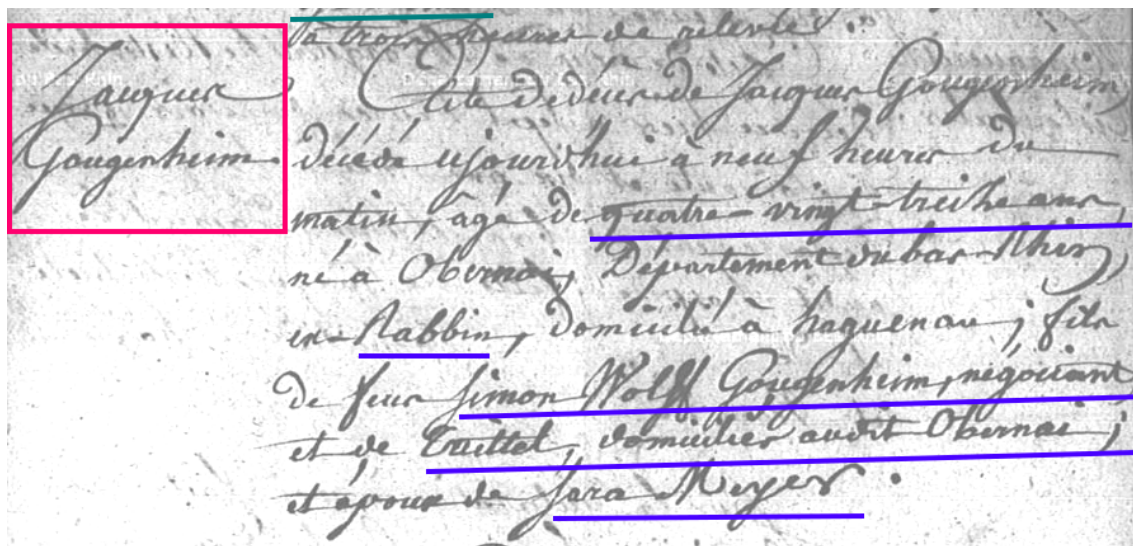 à trois heures de relevée
Jacques
Gougenheim
Acte de décès de Jacques Gougenheim
décédé ajourd'hui à neuf heures du
matin, âgé de quatre-vingt-treize ans,
né à Obernai, Département du bas Rhin,
ex-Rabbin, domicilié à haguenau ; fils
de feus Simon Wolff Gougenheim, négociant
et de , domiciliés audit Obernai ;
et époux de Sara Meyer.